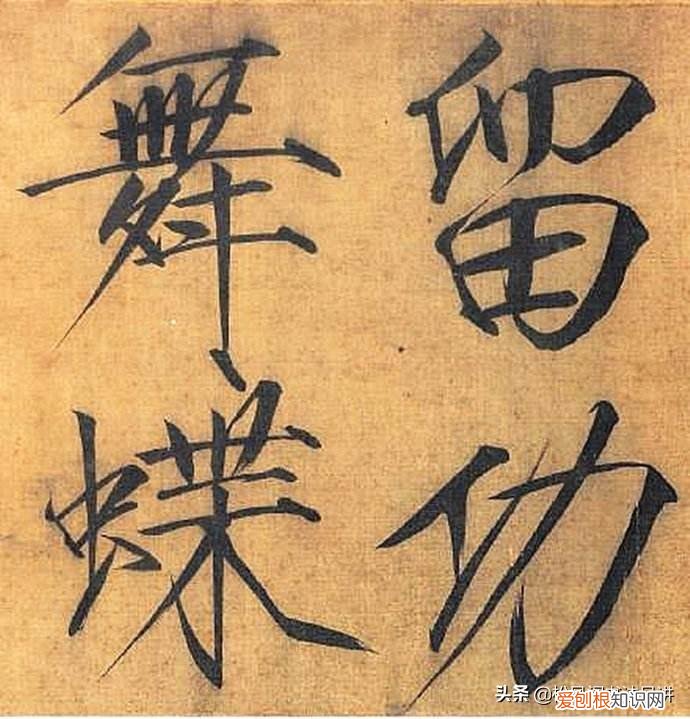 留功
舞蝶
头条
爱创根知识网